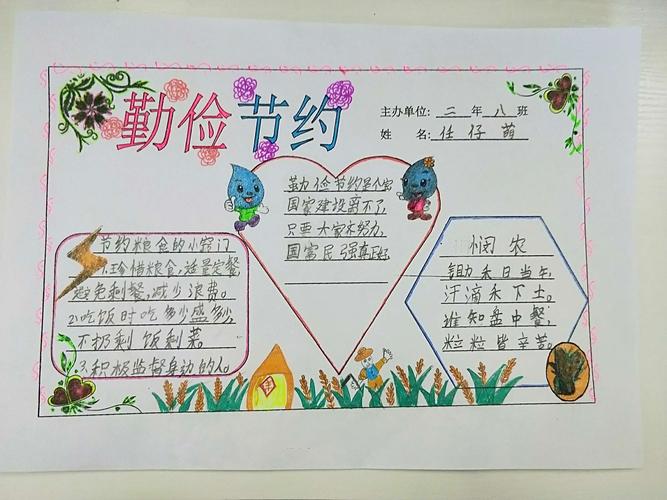 勤俭节约
主办单位: 二 年 八 班
姓 名: 任仔萌
勤俭节约是个宝
国家建设离不了
只要大家来努力
国富民强真正好
节约粮食的小窍门
1.珍惜粮食,适量定餐,
避免剩餐,减少浪费。
2.吃饭时吃多少盛多少,
不扔剩饭剩菜。
3.积极监督身边的人。
悯农
锄禾日当午
汗滴禾下土。
谁知盘中餐,
粒粒皆辛苦。